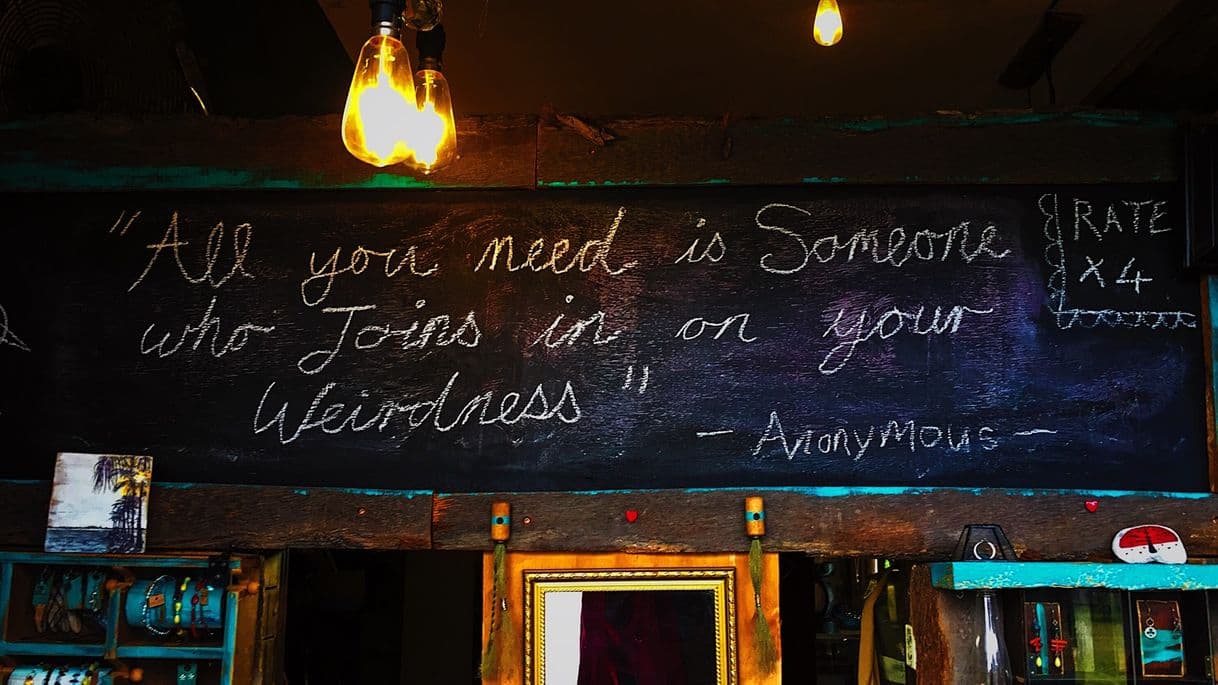 "All you need is Someone
who Joins in on your
Weirdness"
- Anonymous -
RATE
x 4